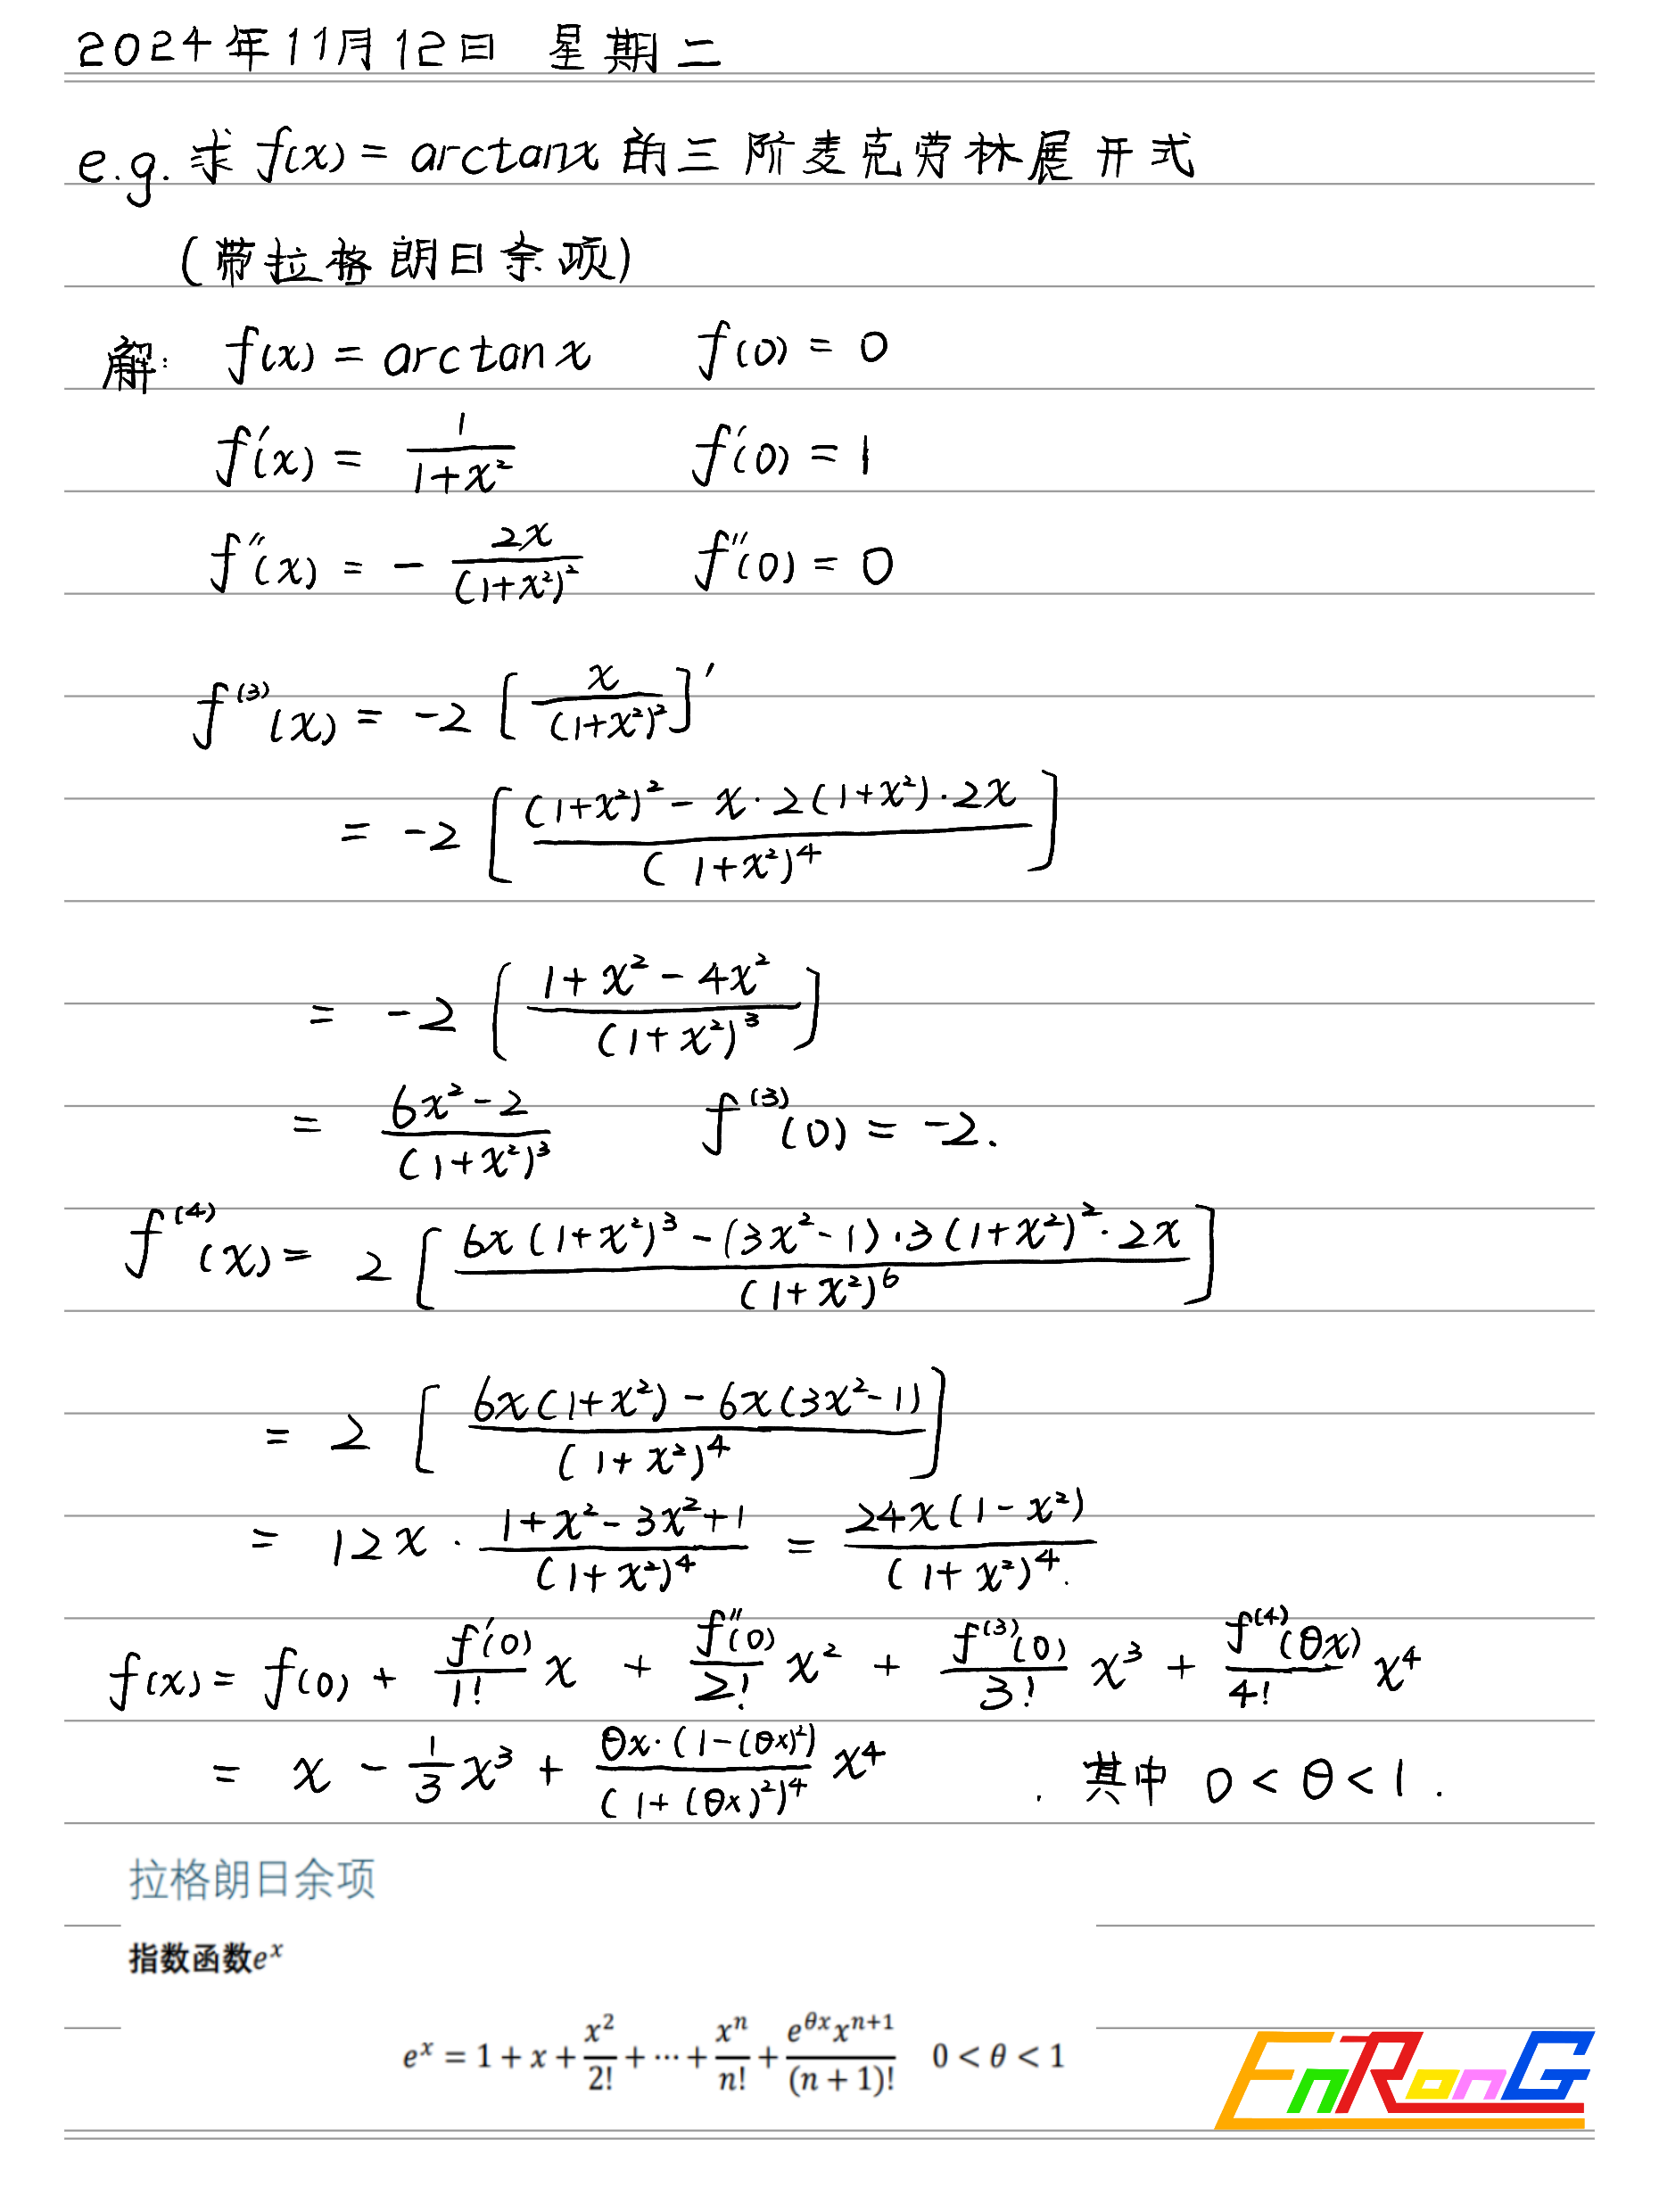 2024年11月12日 星期二
e.g. 求 f(x) = arctanx 的三阶麦克劳林展开式
(带拉格朗日余项)
解: f(x) = arctanx f(0) = 0
f'(x) = \frac{1}{1+x²} f'(0) = 1
f''(x) = - \frac{2x}{(1+x²)²} f''(0) = 0
f^{(3)}(x) = -2 [\frac{x}{(1+x²)²}]'
= -2 [\frac{(1+x²)² - x·2(1+x²)·2x}{(1+x²)^4}]
= -2 [\frac{1+x²-4x²}{(1+x²)³}]
= \frac{6x²-2}{(1+x²)³} f^{(3)}(0) = -2.
f^{(4)}(x) = 2 [\frac{6x(1+x²)³-(3x²-1)·3(1+x²)²·2x}{(1+x²)^6}]
= 2 [\frac{6x(1+x²)-6x(3x²-1)}{(1+x²)^4}]
= 12x · \frac{1+x²-3x²+1}{(1+x²)^4} = \frac{24x(1-x²)}{(1+x²)^4}.
f(x) = f(0) + \frac{f'(0)}{1!}x + \frac{f''(0)}{2!}x² + \frac{f^{(3)}(0)}{3!}x³ + \frac{f^{(4)}(θx)}{4!}x^4
= x - \frac{1}{3}x³ + \frac{θx·(1-(θx)²)}{(1+(θx)²)^4}x^4 . 其中 0 < θ < 1 .
拉格朗日余项
指数函数e^x
e^x = 1 + x + \frac{x²}{2!} + ··· + \frac{x^n}{n!} + \frac{e^{θx}x^{n+1}}{(n+1)!} 0 < θ < 1
EnRonG